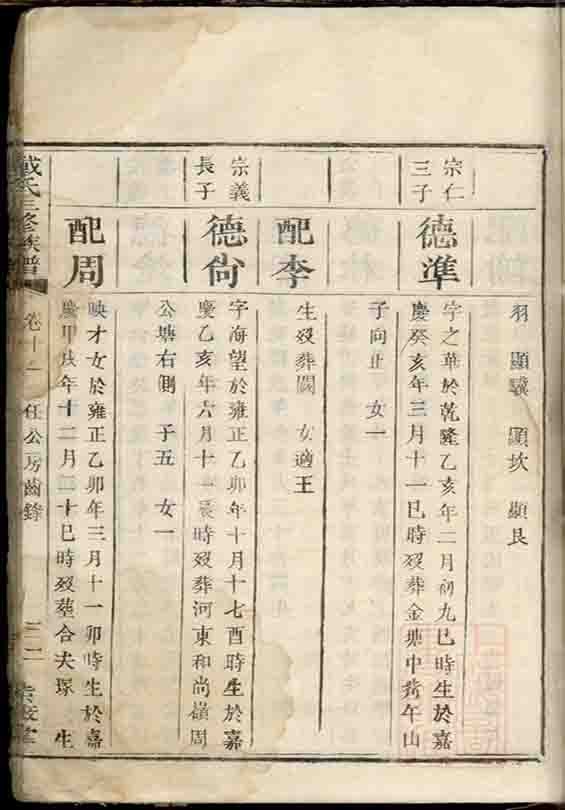 羽 顯驥 顯坎 顯艮
宗仁
三子
德準
字之華於乾隆乙亥年二月初九巳時生於嘉
慶癸亥年三月十一巳時歿葬金塘中 午山
子向止 女一
配李
生歿葬闕 女適王
宗義
長子
德尙
字海望於雍正乙卯年十月十七酉時生於嘉
慶乙亥年六月十一辰時歿葬河東和尚嶺周
公塘右側 子五 女一
配周
映才女於雍正乙卯年三月十一卯時生於嘉
慶甲戌年十二月二十巳時歿葬合夫塚 生
戴氏三修族譜
卷十 任公房齒錄
三二